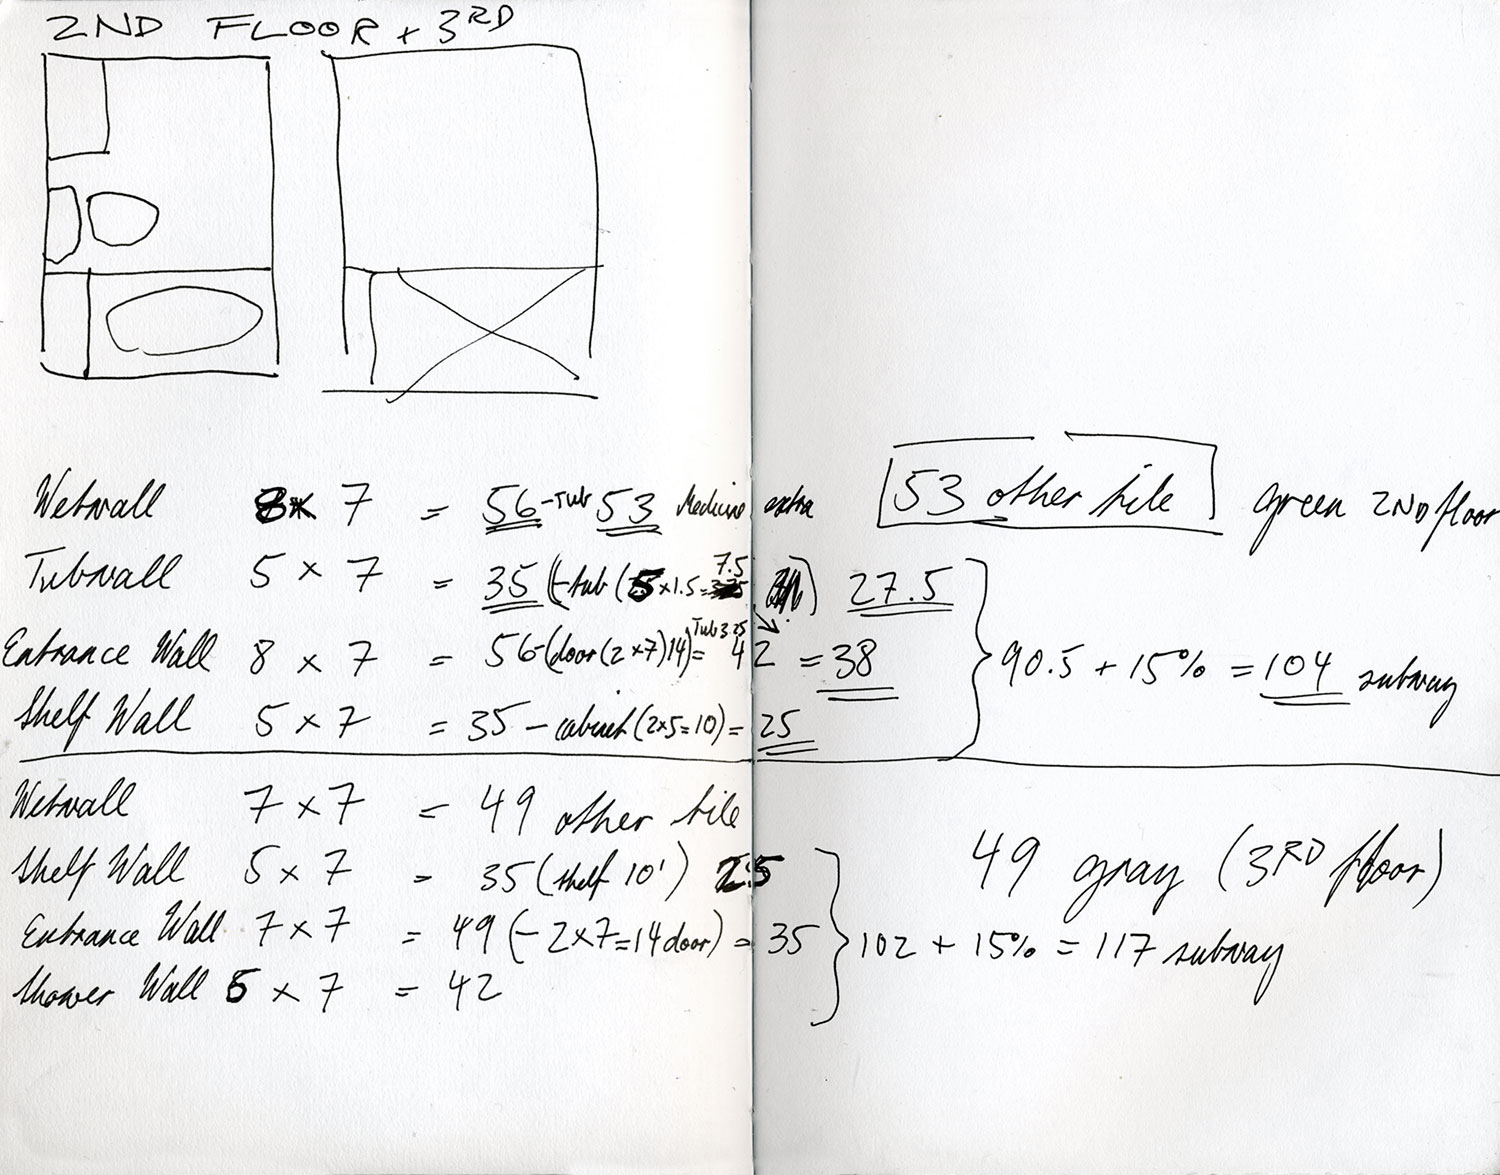 2ND FLOOR + 3RD
Wetwall 8 x 7 = 56 - Tub 53 Medicine extra 53 other tile green 2ND floor
Tubwall 5 x 7 = 35 (- tub (5 x 1.5 = 7.5 ) 27.5
Entrance Wall 8 x 7 = 56 - (door (2 x 7) 14) = Tub 3.25 42 = 38 90.5 + 15% = 104 subway
Shelf Wall 5 x 7 = 35 - cabinet (2x5=10) = 25
Wetwall 7 x 7 = 49 other tile
49 gray (3RD floor)
Shelf Wall 5 x 7 = 35 (shelf 10') 25
Entrance Wall 7 x 7 = 49 (- 2x7=14 door) = 35 102 + 15% = 117 subway
Shower Wall 6 x 7 = 42